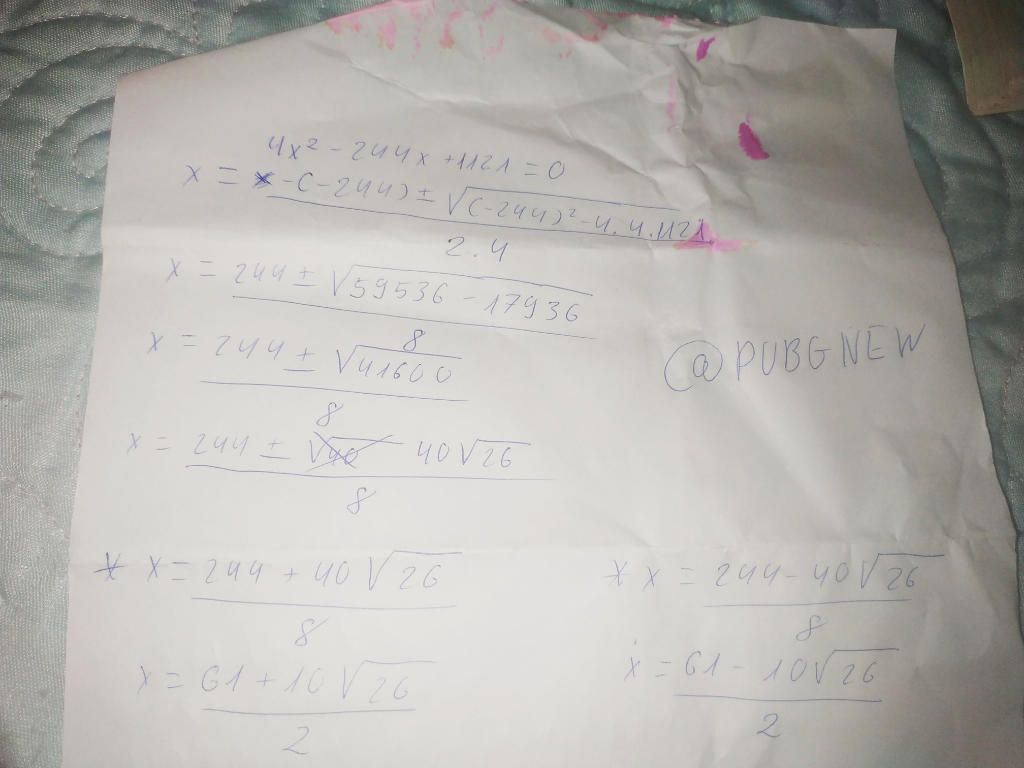 4x² - 244x + 1121 = 0
x = -(-244) ± √(-244)² - 4.4.1121
2.4
x = 244 ± √59536 - 17936
8
x = 244 ± √41600
8
x = 244 ± 40√26
8
@PUBGNEW
* x = 244 + 40√26
8
* x = 244 - 40√26
8
x = 61 + 10√26
2
x = 61 - 10√26
2